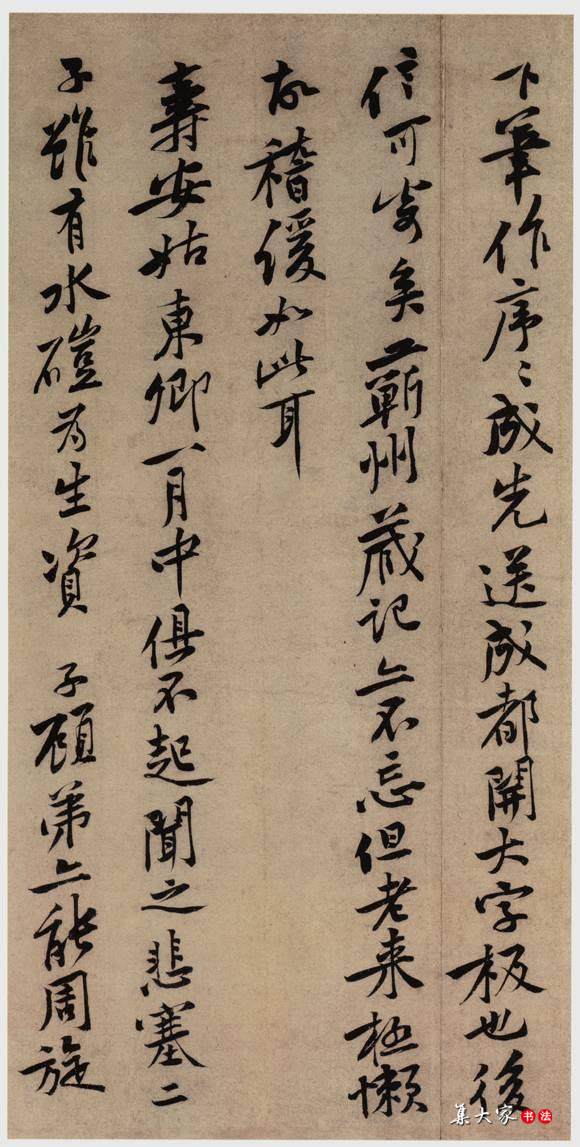 下筆作序〻成先送成都開大字板也後
信可寄矣蘄州藏記亦不忘但老来極懶
故稽緩如此耳
壽安姑東卿一月中俱不起聞之悲塞二
子雖有水磑为生資子顧弟亦能周旋
集大家书法